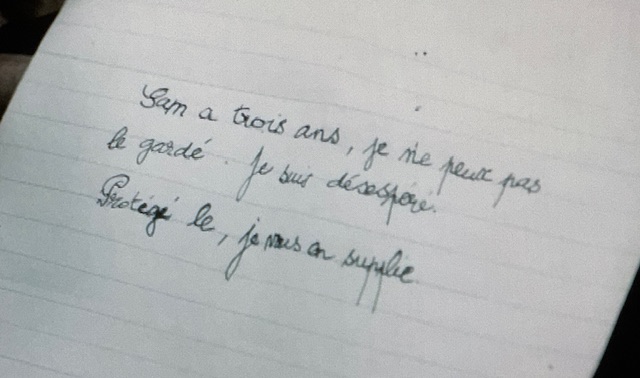 Sam a trois ans, je ne peux pas
le gardé. Je suis désespéré.
Protégé le, je vous en supplie